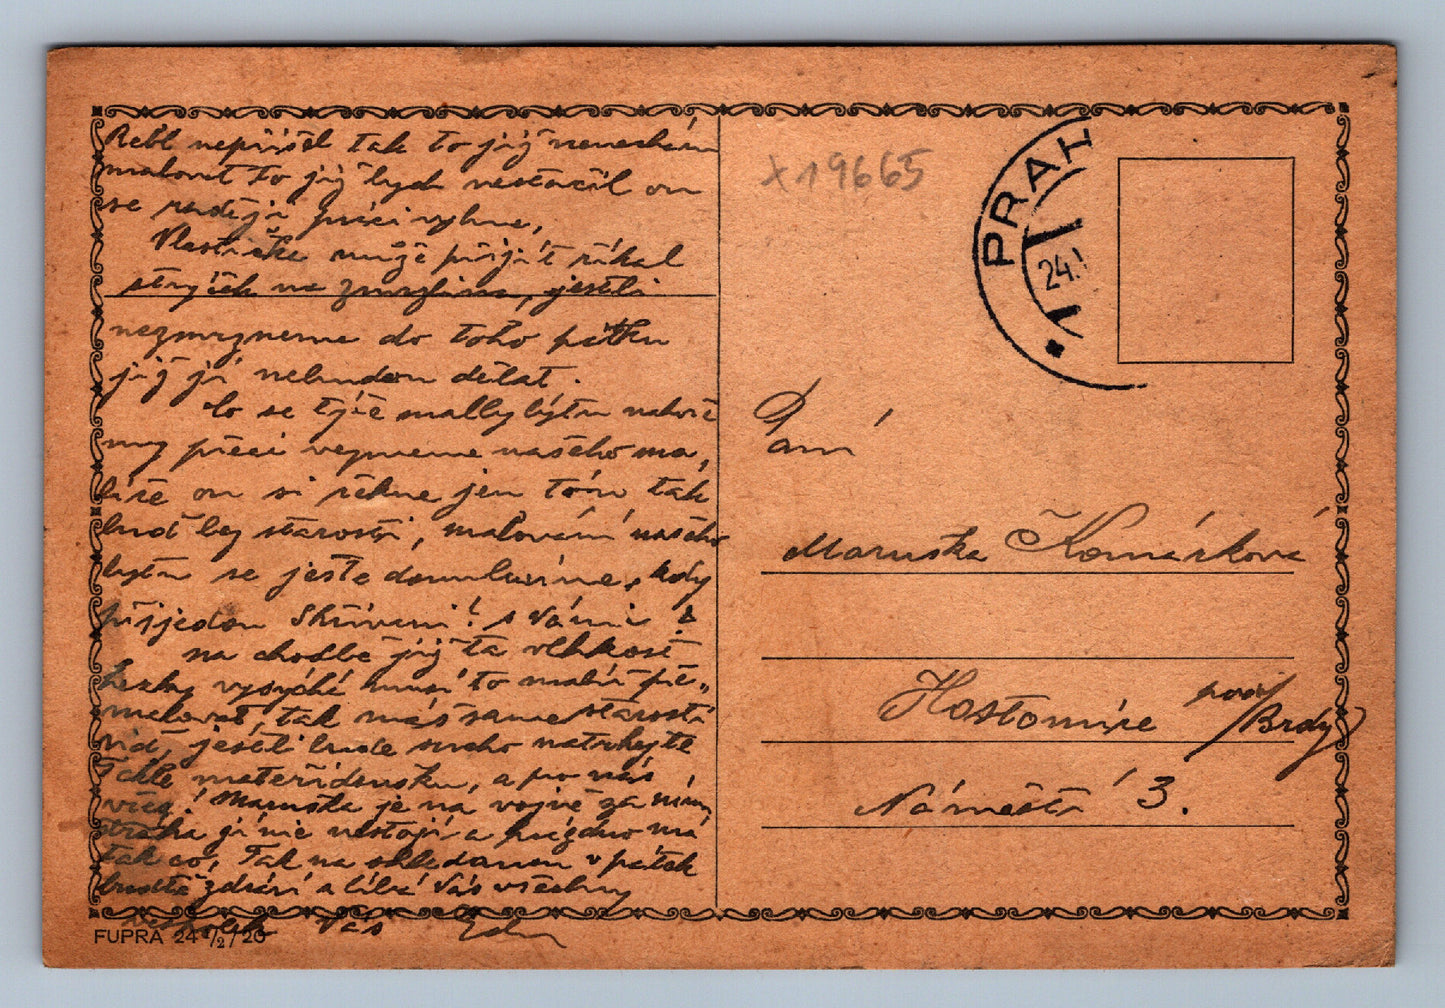 nepřišel tak to již nenechám
malovat to již bych nestačil on
se raději práci vyhne,
Vlastička může přijít říkal
strýček na zmrzlinu, jestli
nezmrzneme do toho pátku
již já nebudou dělat.
Co se týče malby bytu
my přeci vezmeme našeho ma,
líře on si řekne jen tak
buď bez starosti, malování našeho
bytu se ještě domluvíme, kdy
přijedou s Vámi
na chodbě již ta vlhkost
hezky vysýchá musí to malíř pře„
malovat, tak máš samé starosti
viď, jestli bude sucho natrhejte
také mateřídoušku, a pro nás
více! Maruška je na vojně za ním
straka já nic a prázdno má
tak co, Tak na shledanou v pátek
buďte zdrávi a líbá Vás všechny
Vás
FUPRA 24 1/2/26
x19665
PRAH
24.
Paní
Maruška Komárková
Hostomice pod/Brdy
Náměstí 3.